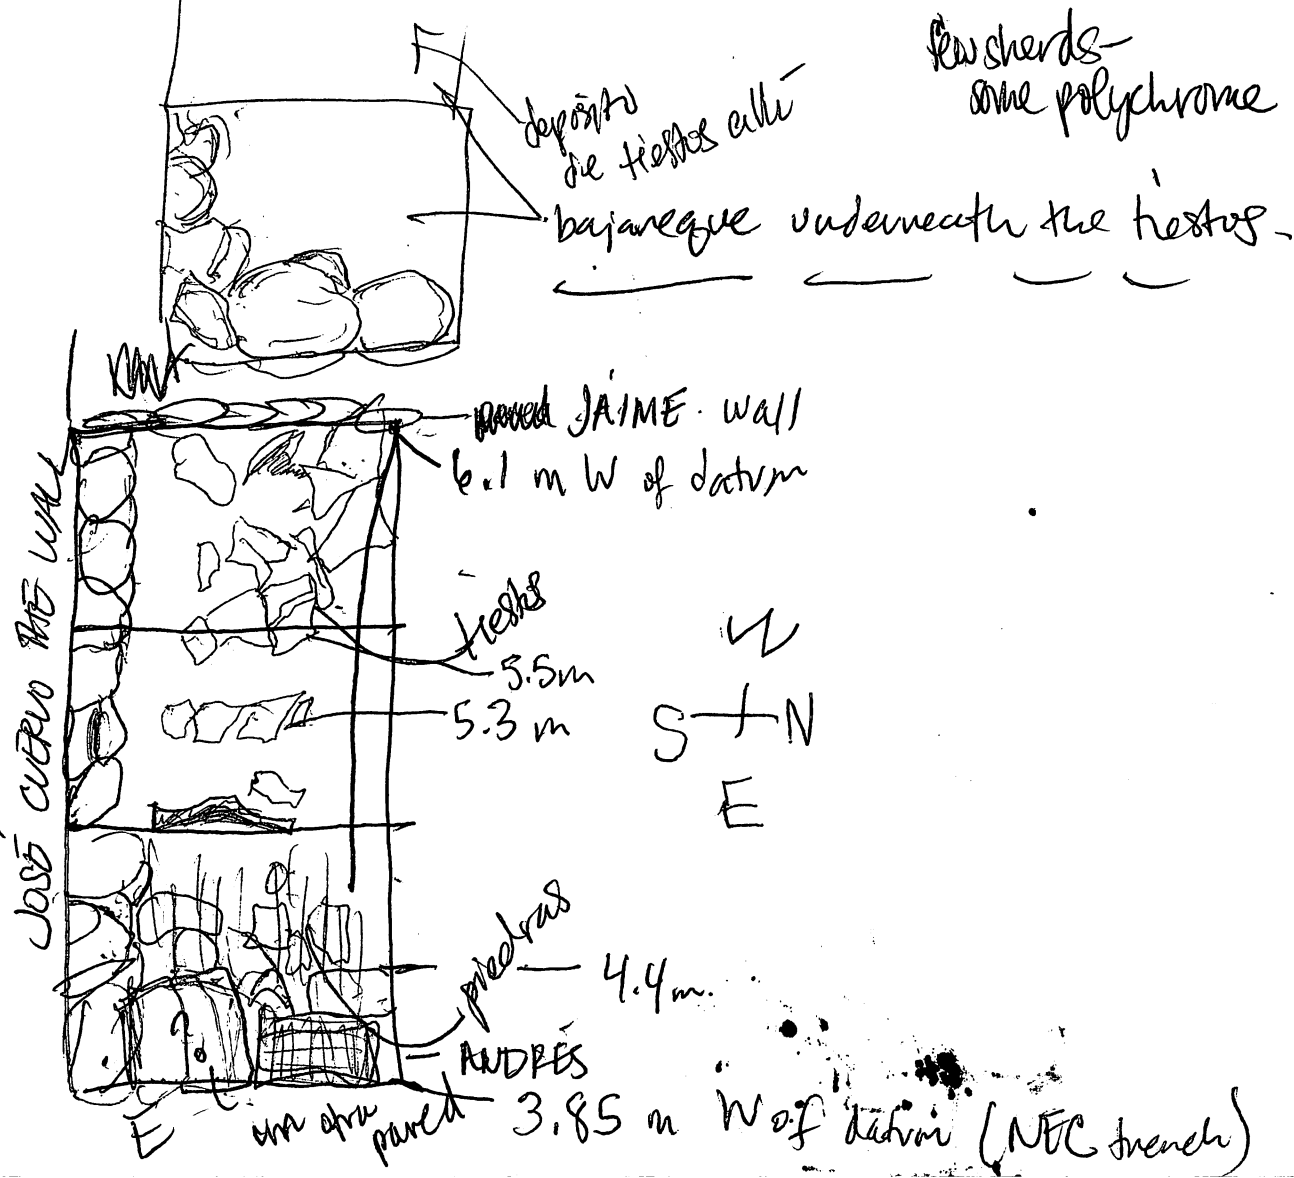 F
few sherds-
some polychrome
depósito
de tiestos allí
bajareque underneath the tiestos-
JAIME wall
6.1 m W of datum
JOSÉ CUERVO THE WALL
tiestos
5.5m
5.3 m
W
S N
E
piedras
4.4m.
ANDRÉS
3.85 m W of datum (NEC trench)
E
otra
pared